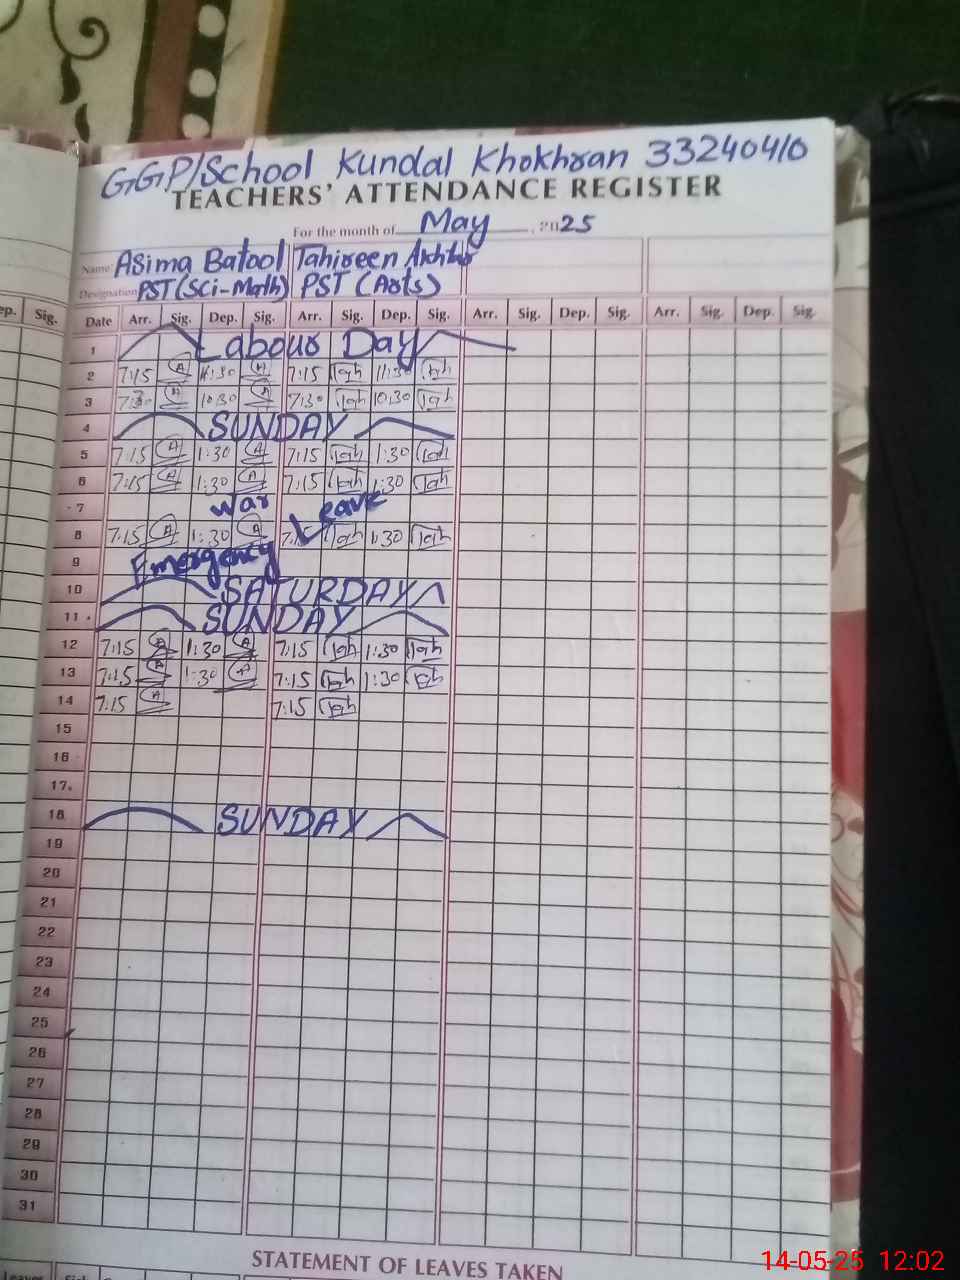 GGP/School Kundal Khokhran 33240410
TEACHERS' ATTENDANCE REGISTER
For the month of May, 2025
Name Asima Batool Tahireen Akhtar
Designation PST (Sci-Math) PST (Arts)
ep. Sig. Date Arr. Sig. Dep. Sig. Arr. Sig. Dep. Sig. Arr. Sig. Dep. Sig. Arr. Sig. Dep. Sig.
1 Labour Day
2 7:15 A 11:30 A 7:15 11:30
3 7:30 A 10:30 A 7:30 10:30
4 SUNDAY
5 7:15 A 1:30 A 7:15 1:30
6 7:15 A 1:30 A 7:15 1:30
7 War Leave
8 7:15 A 1:30 A 1:30
9 Emergency
10 SATURDAY
11 SUNDAY
12 7:15 A 1:30 A 7:15 1:30
13 7:15 A 1:30 A 7:15 1:30
14 7:15 A 7:15
15
16
17
18 SUNDAY
19
20
21
22
23
24
25
26
27
28
29
30
31
STATEMENT OF LEAVES TAKEN
Leaves
14-05-25 12:02